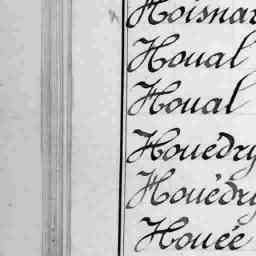 Hoisnar
Houal
Houal
Houédry
Houédry
Houée